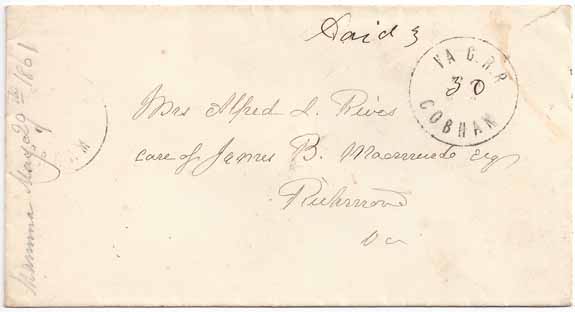 Paid 3
VA C.R.R
30
COBHAM
Mrs Alfred L. Rives
care of James B. Macmurdo Esq
Richmond
Va
Mamma May 29th 1861